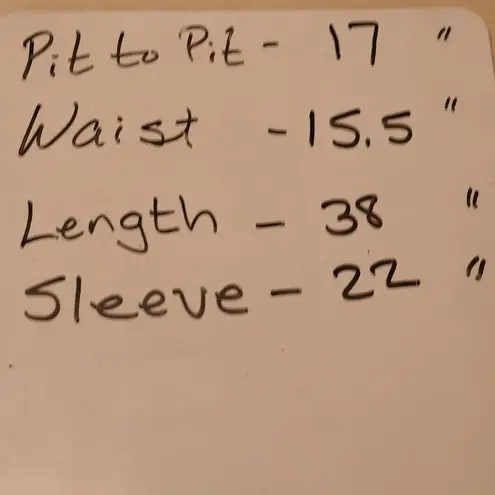 Pit to Pit - 17 "
Waist - 15.5 "
Length - 38 "
Sleeve - 22 "